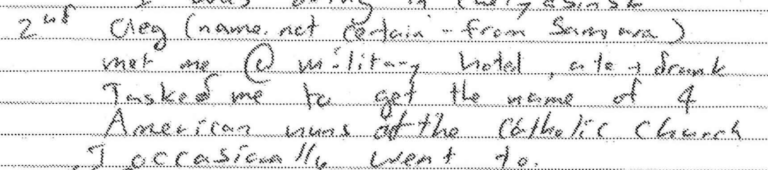 I was being in Chelyabinsk
2nd Oleg (name not certain - from Samara)
met me @ military hotel, ate + drank
Tasked me to get the name of 4
American nuns at the Catholic Church
I occasionally went to.